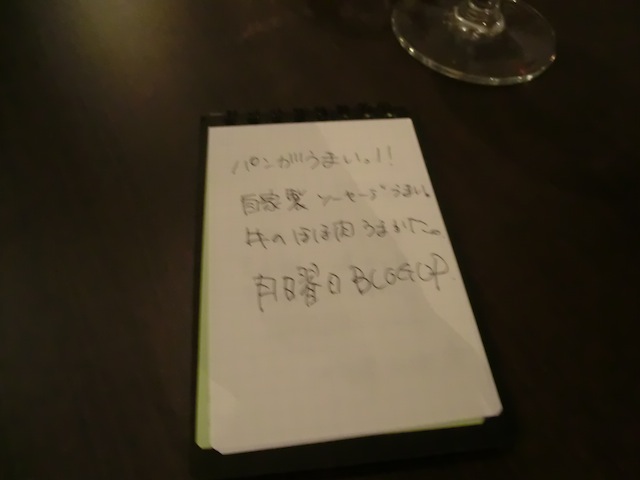 パンがうまい。!!
自家製ソーセージうまい。
牛のほほ肉うまかった。
月曜日BLOGUP